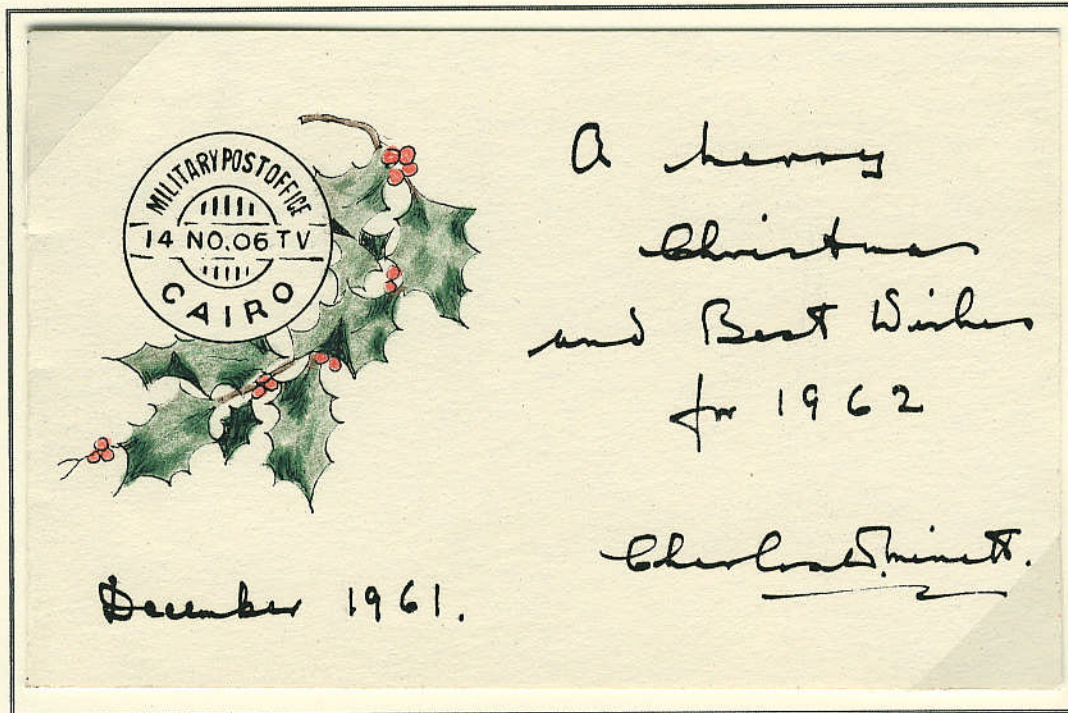 MILITARY POST OFFICE
14 NO.06 TV
CAIRO
A merry
Christmas
and Best Wishes
for 1962
Charles Minett.
December 1961.